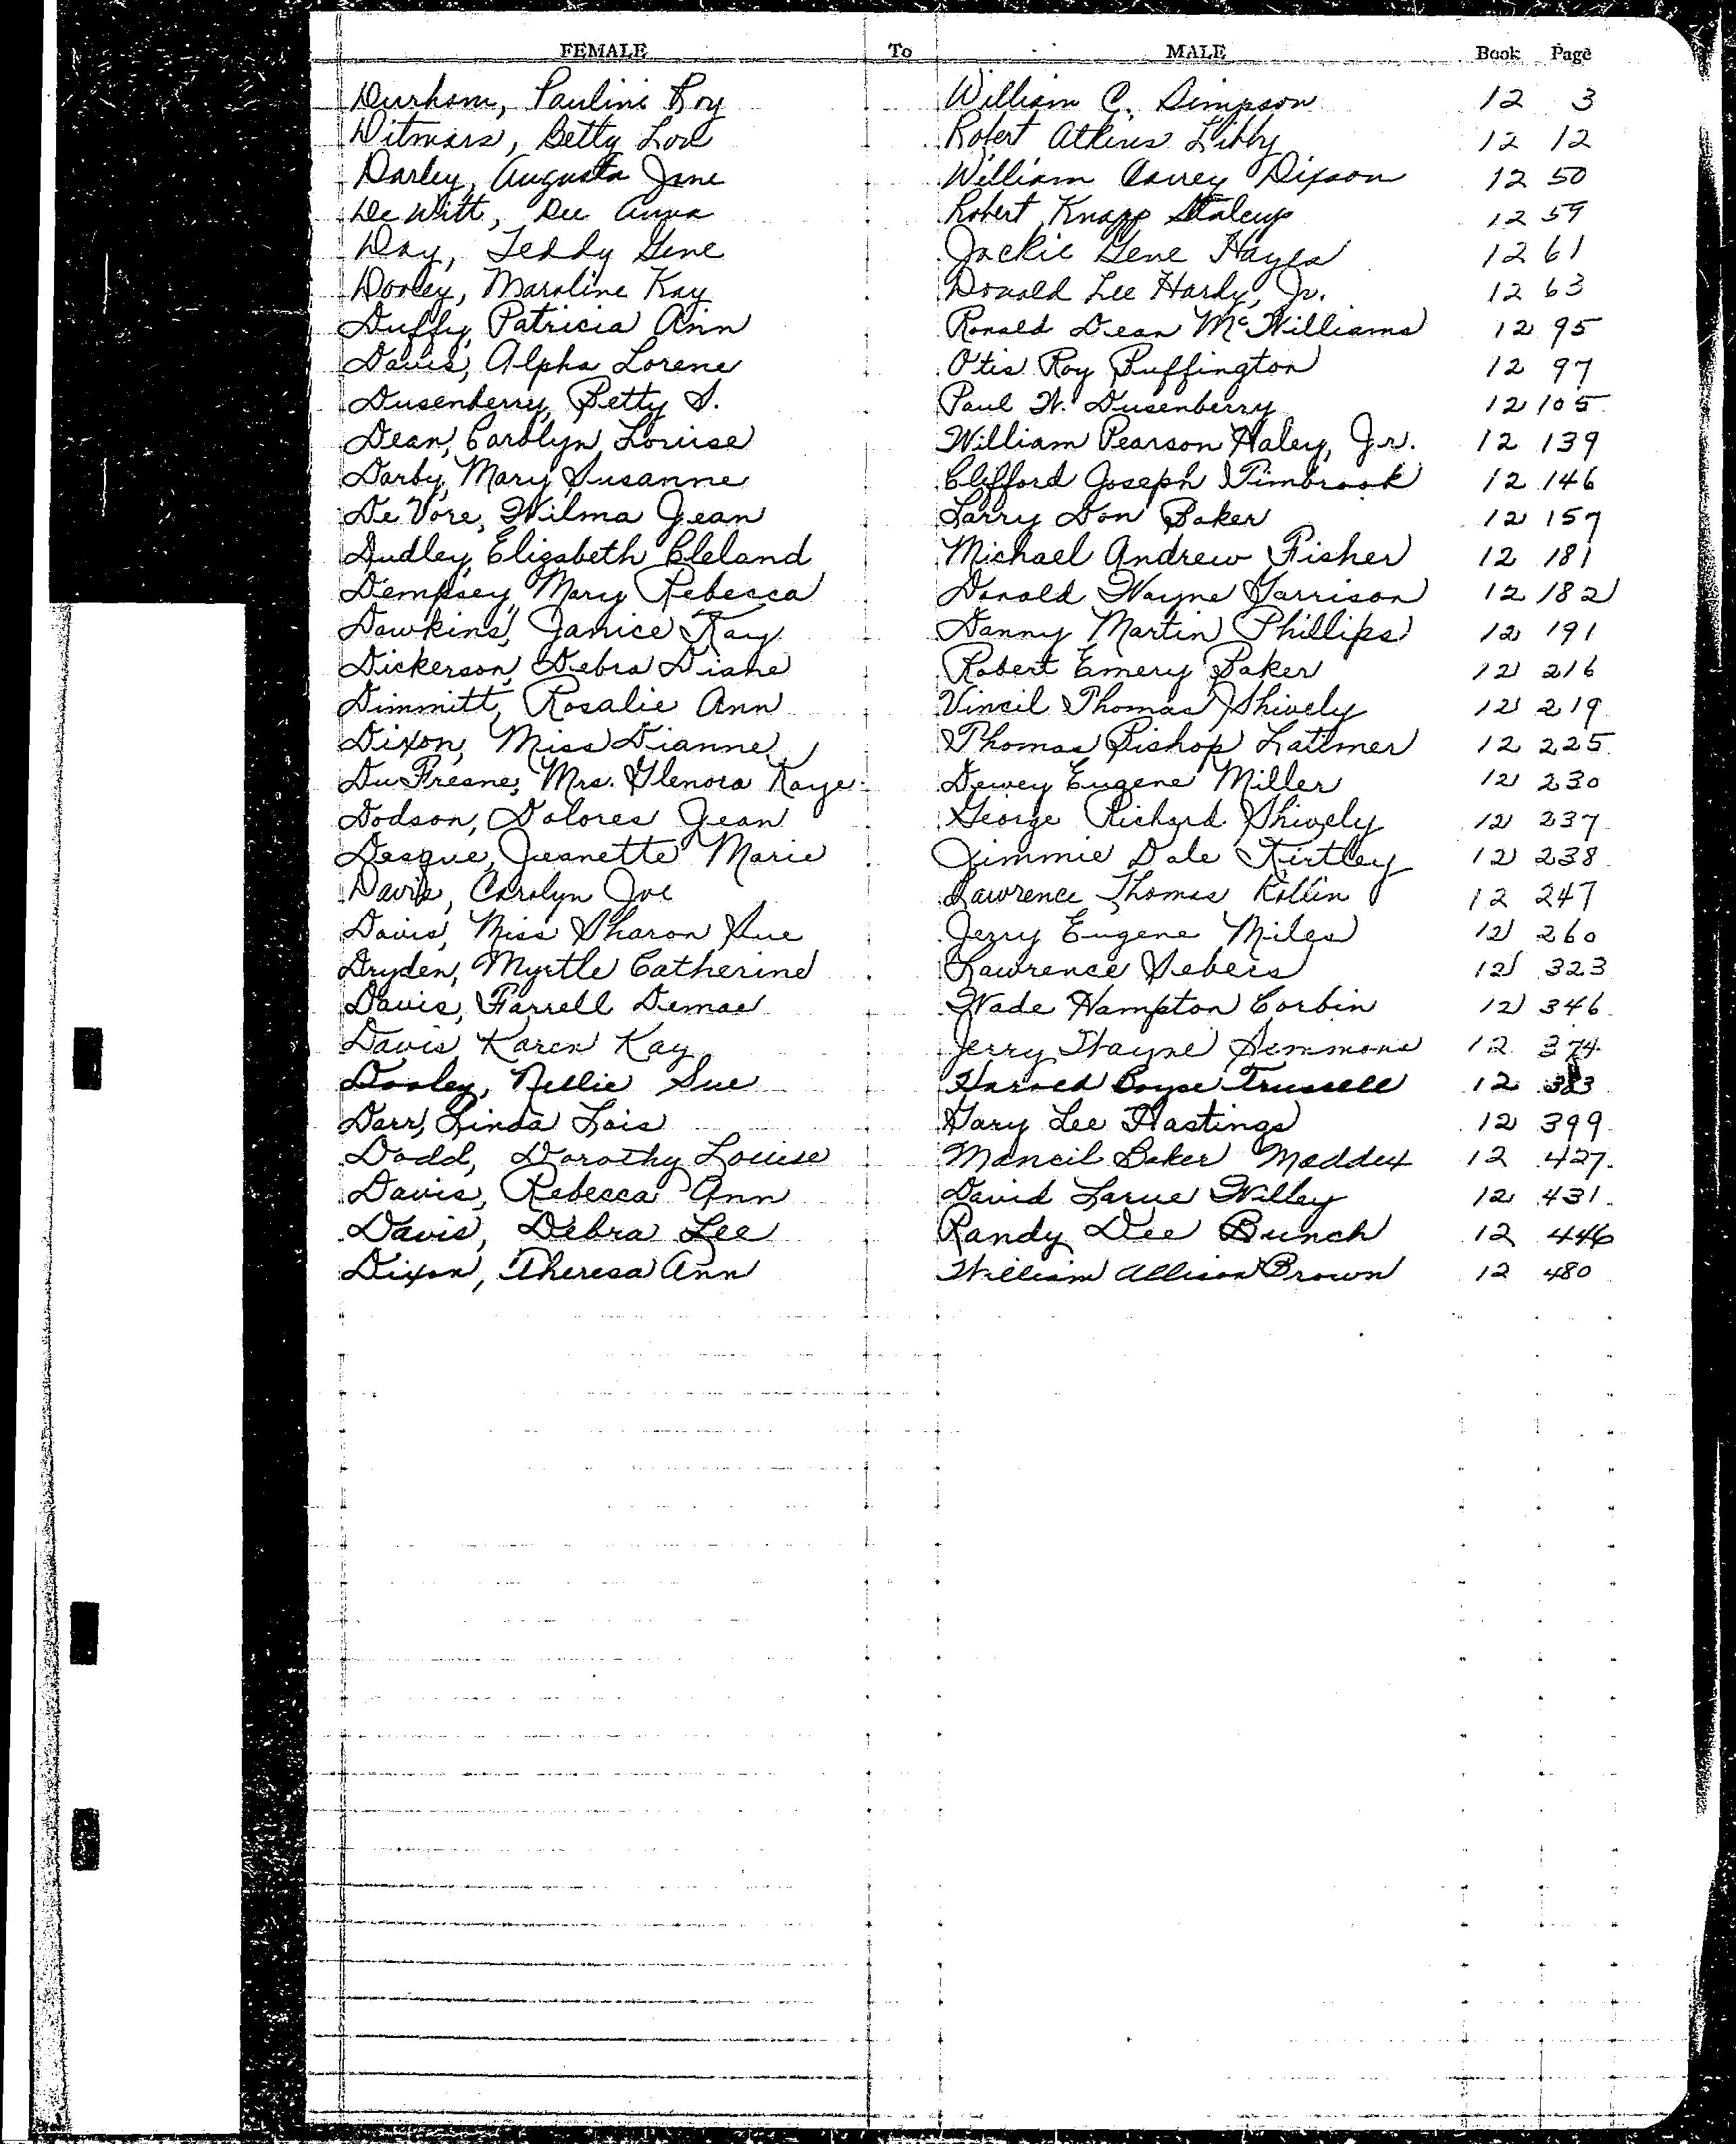 FEMALE To MALE Book Page
Durham, Pauline Roy William C. Simpson 12 3
Ditmars, Betty Lou Robert Atkins Libby 12 12
Darley, Augusta Jane William Carrey Dixson 12 50
De Witt, Dee Anna Robert Knapp Staleup 12 59
Day, Teddy Gene Jackie Gene Hayes 12 61
Dooley, Maroline Kay Donald Lee Hardy, Jr. 12 63
Duffy, Patricia Ann Ronald Dean McWilliams 12 95
Davis, Alpha Lorene Otis Roy Buffington 12 97
Dusenberry, Betty S. Paul W. Dusenberry 12 105
Dean, Carolyn Louise William Pearson Haley, Jr. 12 139
Darby, Mary Susanne Clifford Joseph Timbrook 12 146
De Vore, Wilma Jean Larry Don Baker 12 157
Dudley, Elizabeth Cleland Michael Andrew Fisher 12 181
Dempsey, Mary Rebecca Donald Wayne Garrison 12 182
Dawkins, Janice Kay Danny Martin Phillips 12 191
Dickerson, Debra Diane Robert Emery Baker 12 216
Dimmitt, Rosalie Ann Vincil Thomas Shively 12 219
Dixon, Miss Dianne Thomas Bishop Lattmer 12 225
Du Fresne, Mrs. Glenora Kaye Dewey Eugene Miller 12 230
Dodson, Dolores Jean George Richard Shively 12 237
Deaque, Jeanette Marie Jimmie Dale Kirtley 12 238
Davis, Carolyn Joe Lawrence Thomas Killin 12 247
Davis, Miss Sharon Sue Jerry Eugene Miles 12 260
Dryden, Myrtle Catherine Lawrence Sebers 12 323
Davis, Farrell Demae Wade Hampton Corbin 12 346
Davis Karen Kay Jerry Wayne Simmons 12 374
Dooley, Nellie Sue Harold Boyse Trussell 12 383
Darr, Linda Lois Gary Lee Hastings 12 399
Dodd, Dorothy Louise Mancil Baker Maddex 12 427
Davis, Rebecca Ann David Larue Willey 12 431
Davis, Debra Lee Randy Dee Bunch 12 446
Dixon, Theresa Ann William Allison Brown 12 480